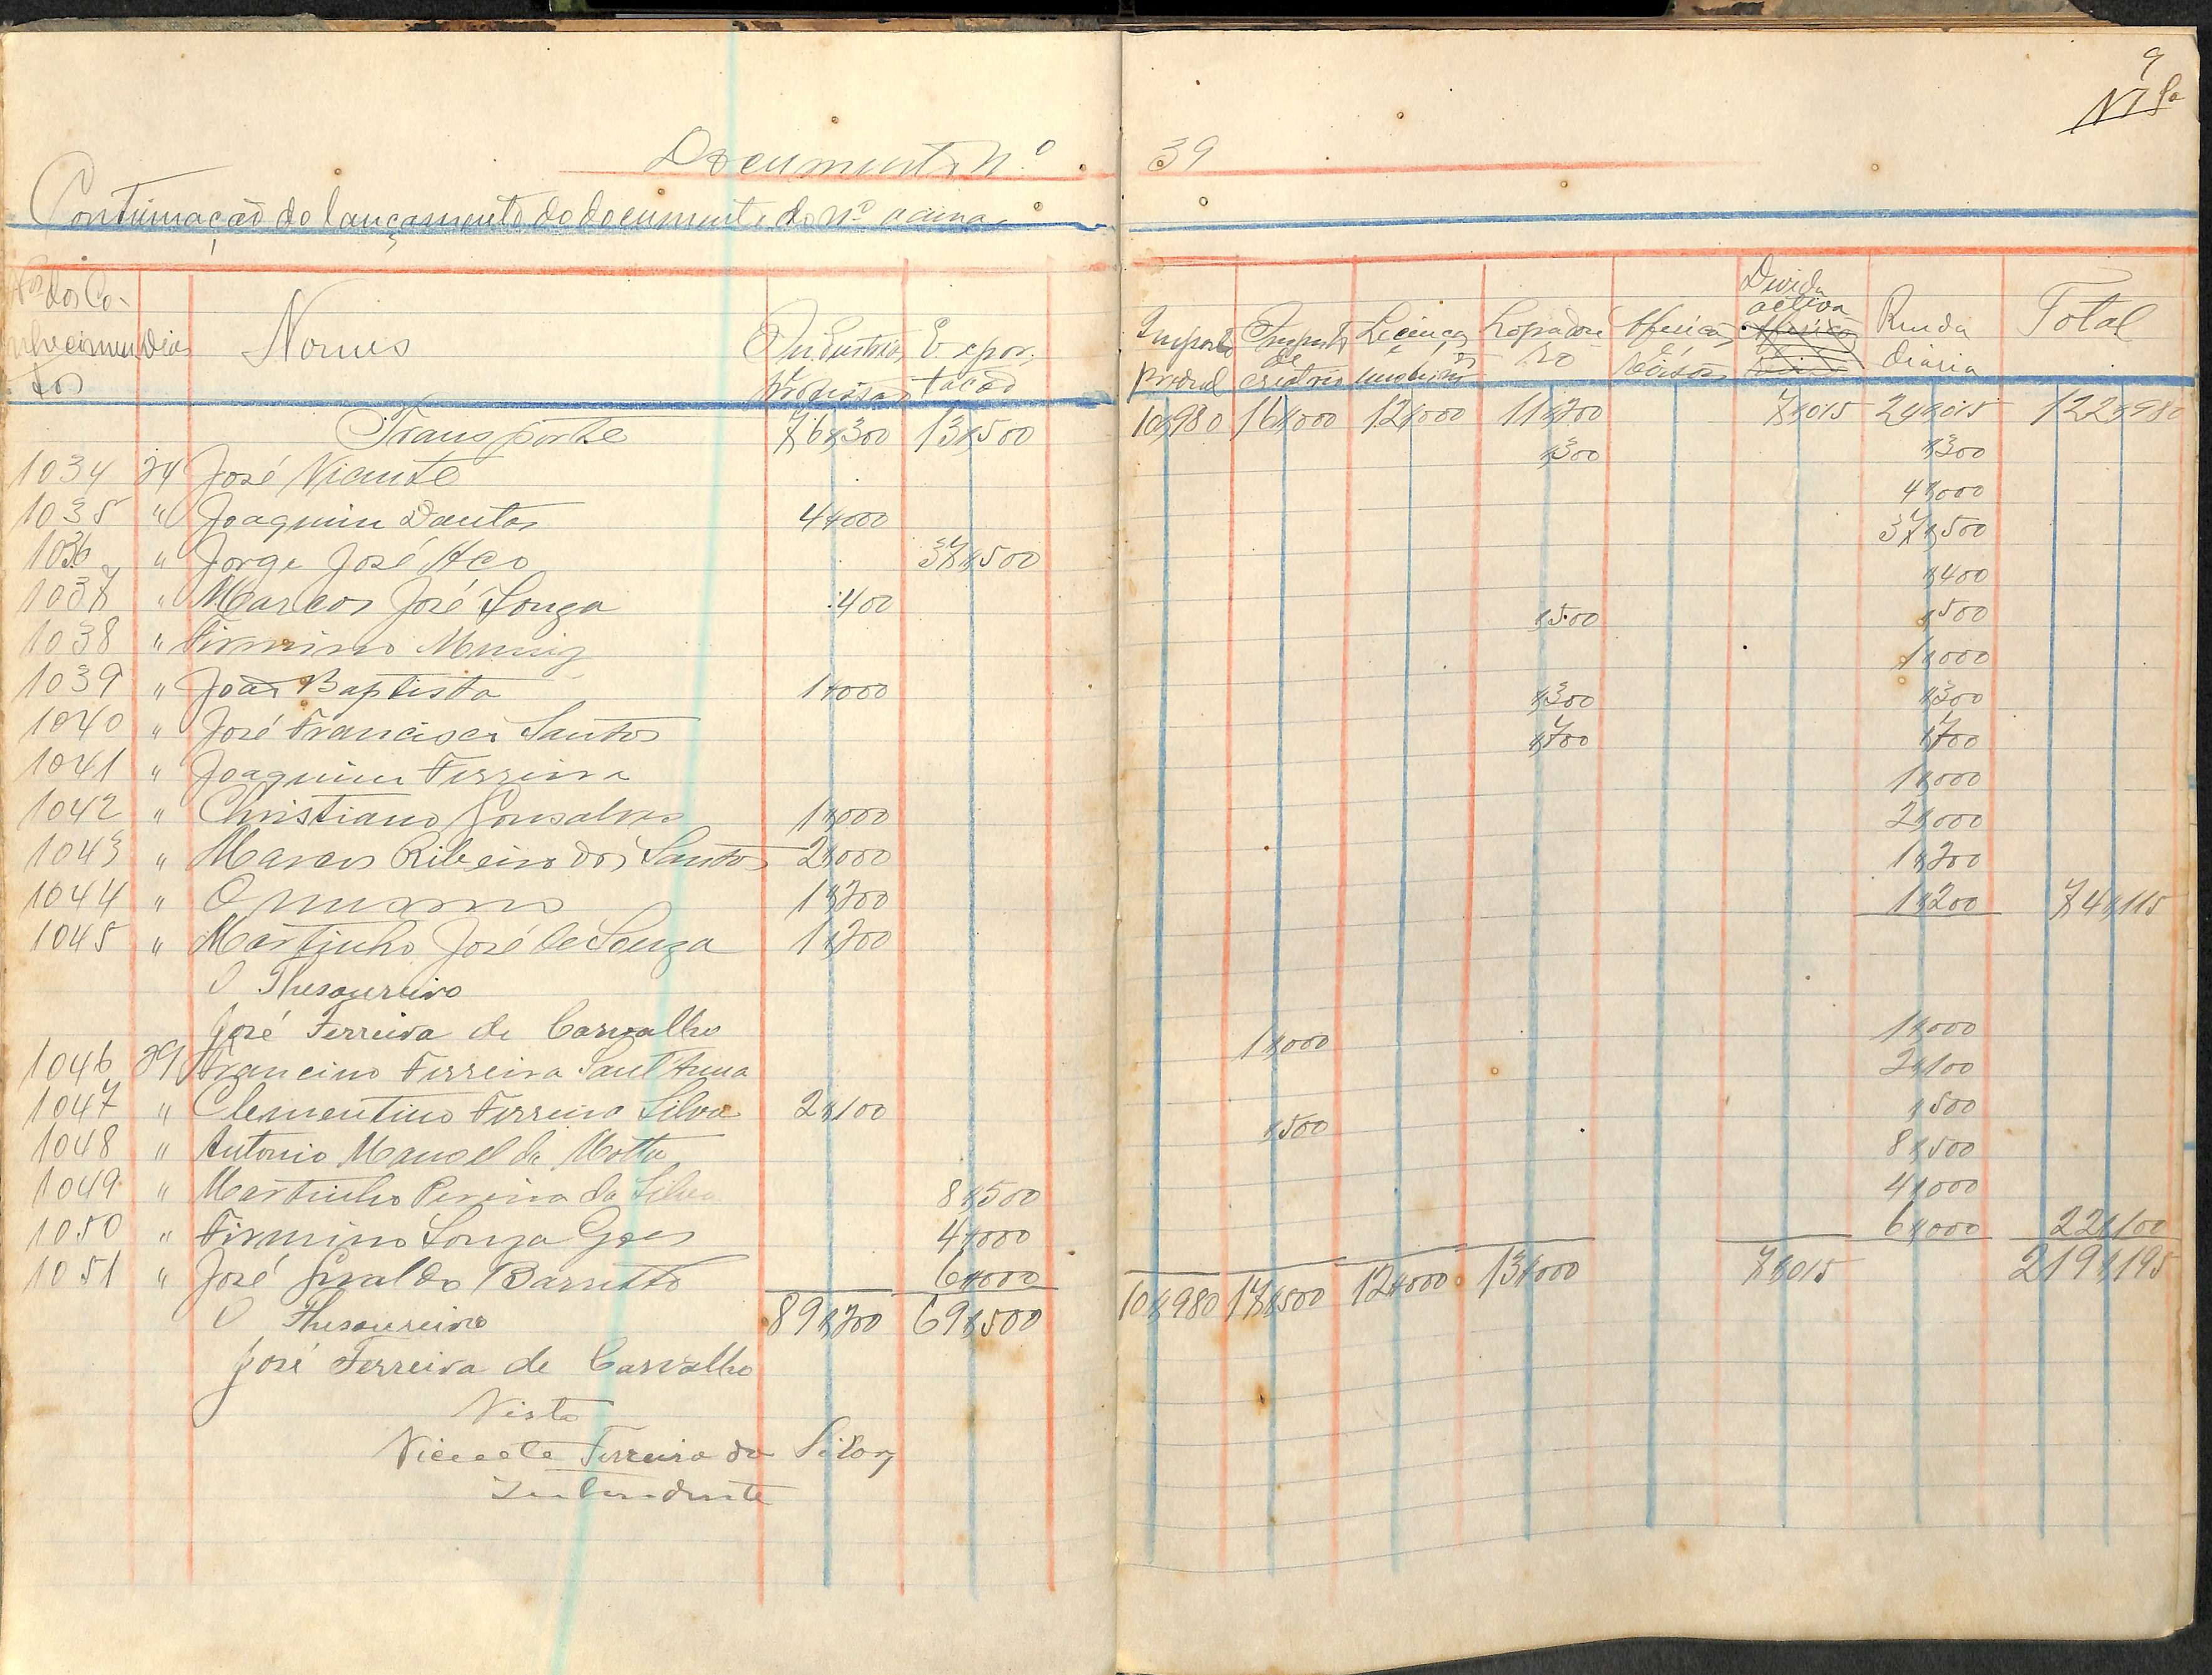 9
Documento Nº 39
Continuação do lançamento do documento do nº acima
Nos dos Co-
nhecimen
tos
Dias
Nomes
Industria e Profissão
Expor-
tação
Imposto
predial
Imposto
de
Licença
Logradou
ro
Afericão
Divida
activa
Renda
diaria
Total
Transporte 76$300 13$500 10$980 16$000 12$000 11$200 7$015 24$015 122$980
1034 24 José Vicente $300 $300
1035 " Joaquim Dantas 4$000 4$000
1036 " Jorge José 37$500 37$500
1037 " Marcos José Souza 400 $400
1038 " Firmino Muniz $500 $500
1039 " João Baptista 1$000 1$000
1040 " José Francisco Santos $300 $300
1041 " Joaquim Ferreira $700 $700
1042 " Christiano Gonsalves 1$000 1$000
1043 " Marcos Ribeiro dos Santos 2$000 2$000
1044 " O mesmo 1$200 1$200
1045 " Martinho José de Souza 1$200 1$200 74$115
O Thesoureiro
José Ferreira de Carvalho
1046 29 Francino Ferreira Sant'Anna 1$000 1$000
1047 " Clementino Ferreira Silva 2$100 2$100
1048 " Antonio Manoel da Motta $500 $500
1049 " Martinho Pereira da Silva 8$500 8$500
1050 " Firmino Souza Goes 4$000 4$000
1051 " José Barretto 6$000 6$000 22$100
89$200 69$500 10$980 17$500 12$000 13$000 7$015 219$195
O Thesoureiro
José Ferreira de Carvalho
Visto
Vicente Ferreira da Silva
Intendente